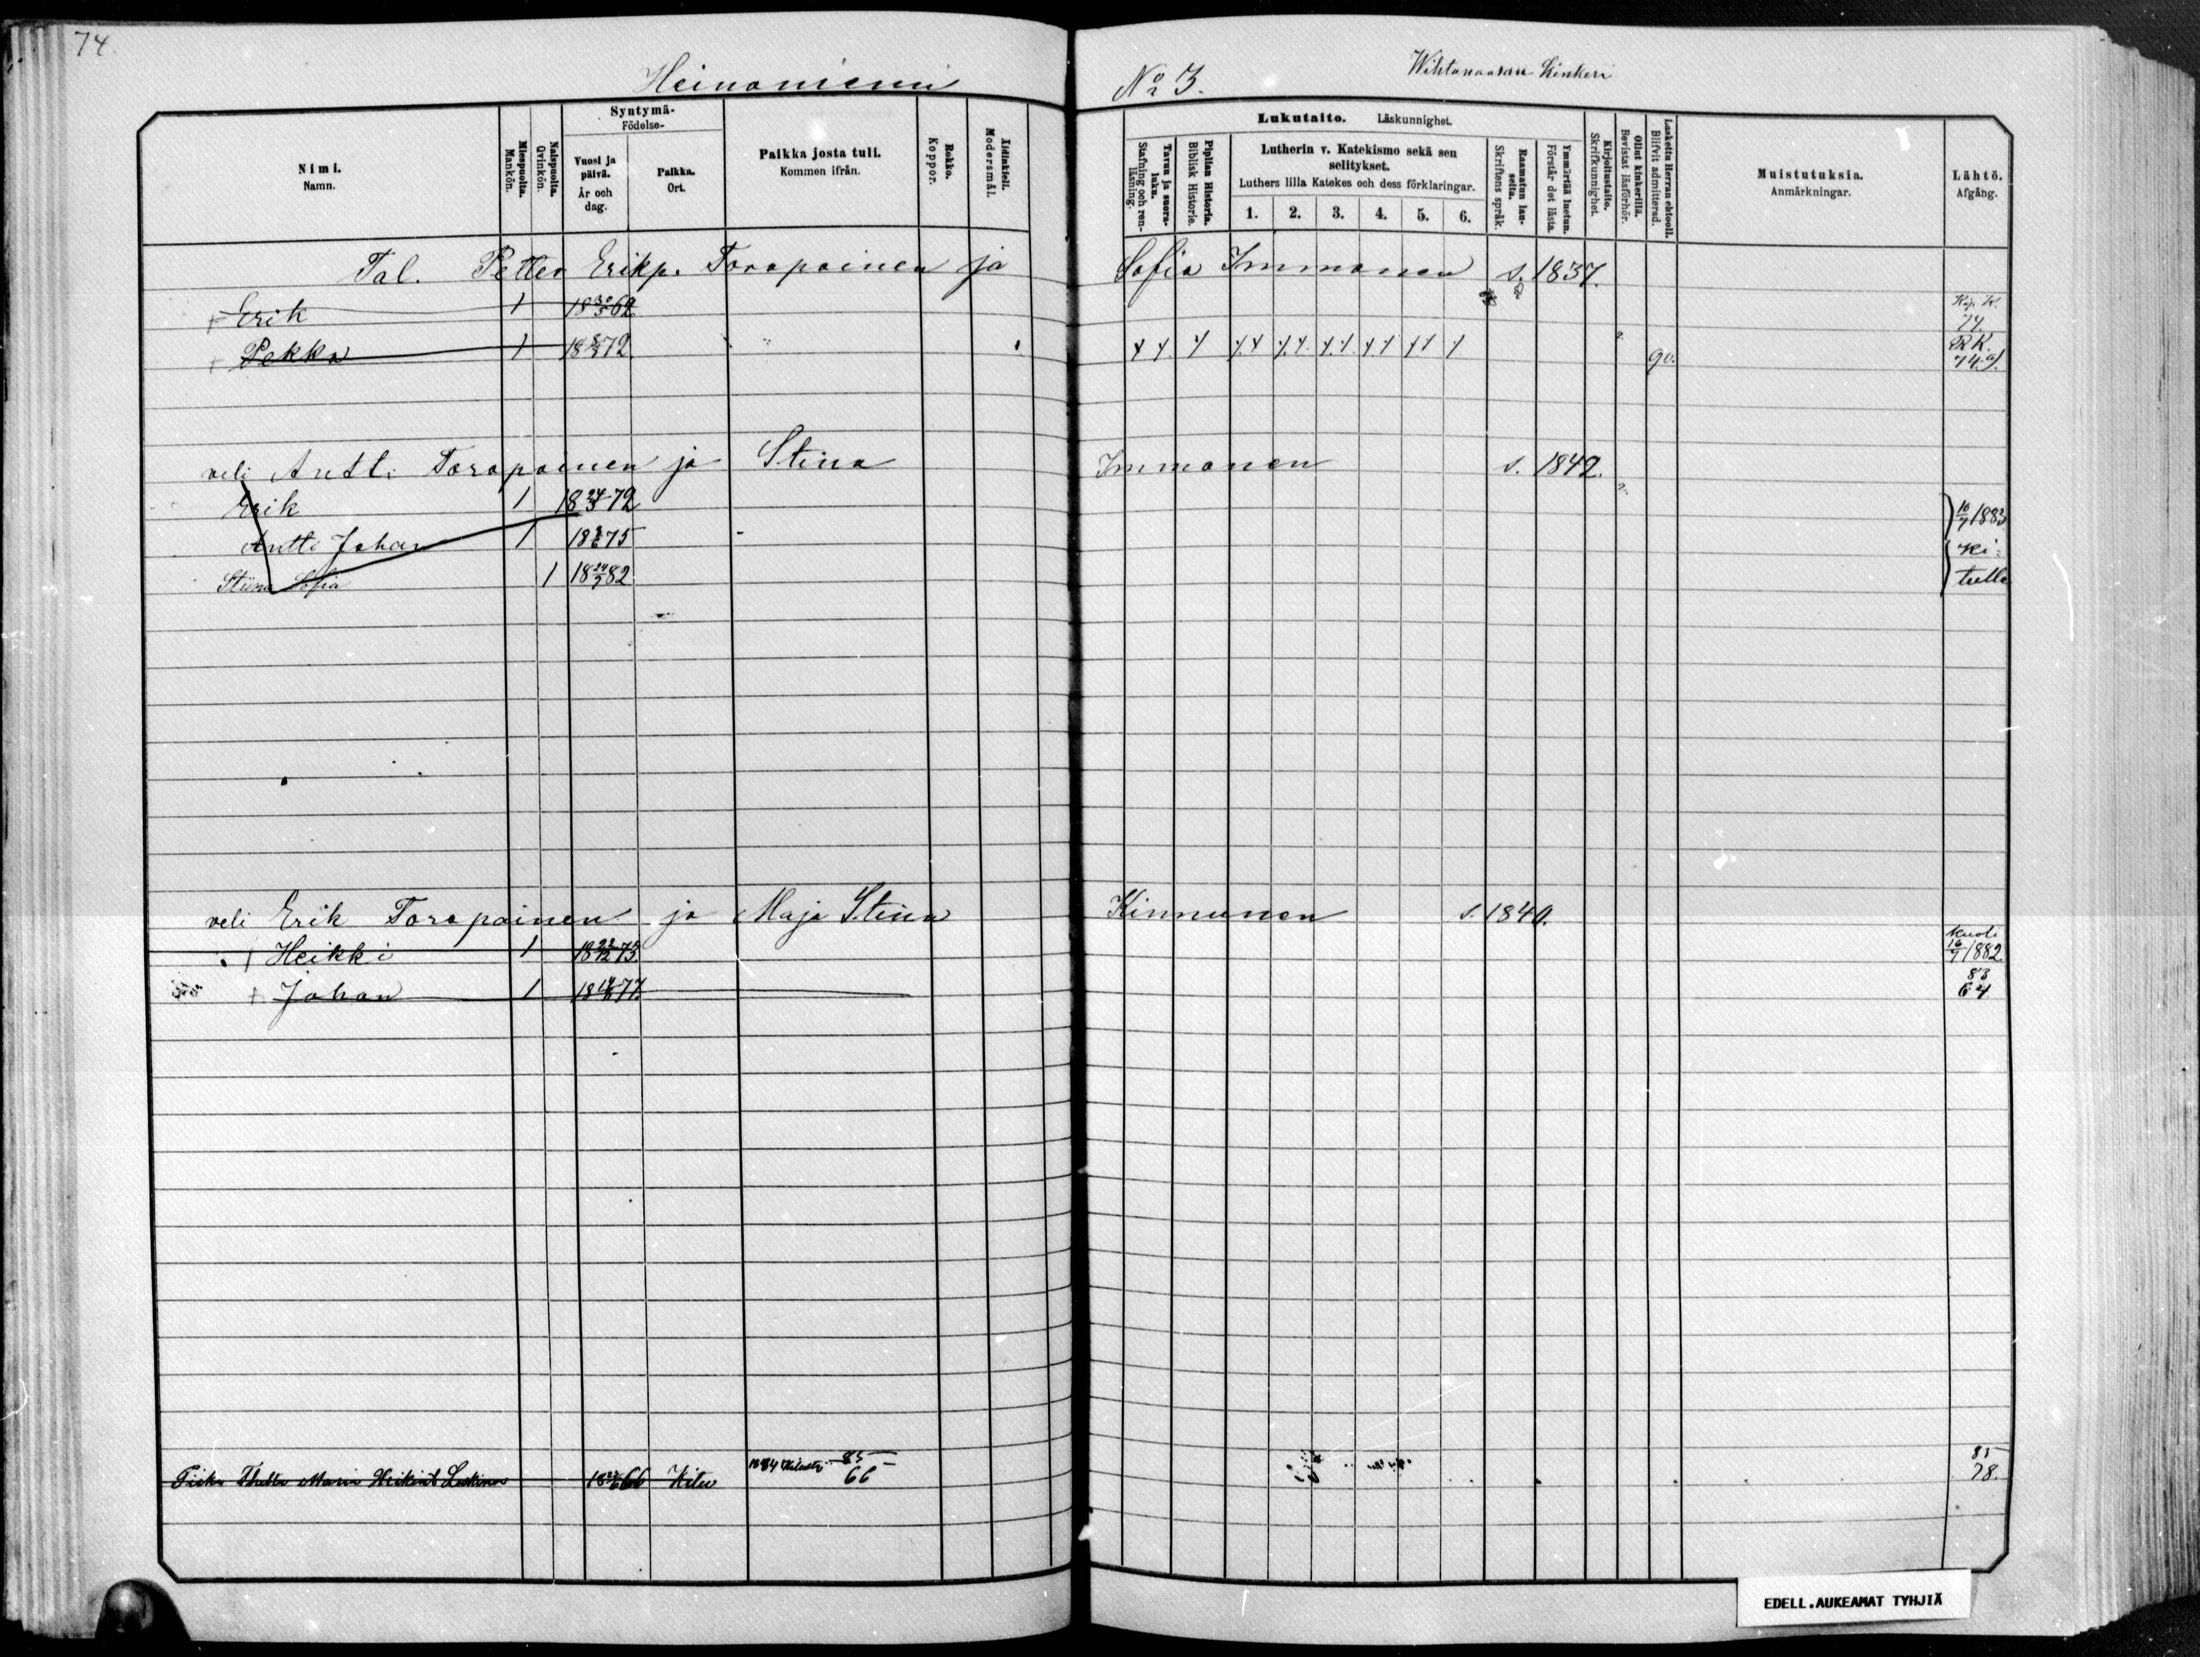 74.
Heinoniemi
No 3.
Wihtanaaran Kinkeri
Nimi.
Namn.
Miespuolta.
Mankön.
Naispuolta.
Qvinkön.
Syntymä-
Födelse-
Vuosi ja
päivä.
År och
dag.
Paikka.
Ort.
Paikka josta tuli.
Kommen ifrån.
Rokko.
Koppor.
Äidinkieli.
Modersmål.
Lukutaito. Läskunnighet.
Tavuu ja suora-
luku.
Stafning och ren-
läsning.
Piplian Historia.
Biblisk Historie.
Lutherin v. Katekismo sekä sen
selitykset.
Luthers lilla Katekes och dess förklaringar.
1. 2. 3. 4. 5. 6.
Raamatun lau-
seita.
Skriftens språk.
Ymmärtää luetun.
Förstår det lästa.
Kirjoitustaito.
Skrifkunnighet.
Ollut kinkerillä.
Bevistat läsförhör.
Laskettu Herran ehtooll.
Blifvit admitterad.
Muistutuksia.
Anmärkningar.
Lähtö.
Afgång.
Tal. Petter Erikp. Toropainen ja Sofia Immonen s. 1837.
Erik 1 18 30/5 62
74.
Pekka 1 72 90. RK.
74.a).
veli Antti Toropainen ja Stina Immonen s. 1842.
Erik 1 72 1883
Antti Johan 1 75 Ki-
Stiina Sofia 1 18 24/7 82 telle
veli Erik Toropainen ja Maja Stina Kinnunen s. 1840.
Heikki 1 75 kuoli
16/7 1882.
Johan 1 77 83
64
85
66
Maria 66 Kitee
85
78.
EDELL.AUKEAMAT TYHJIÄ